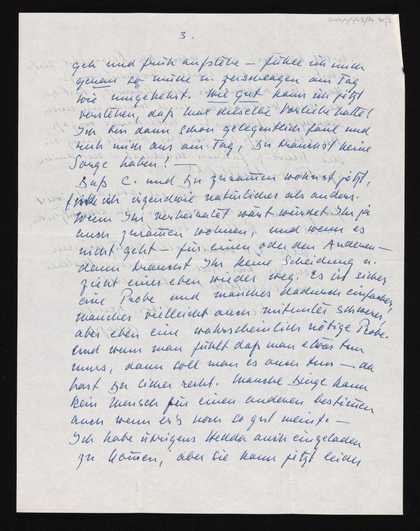 3.
geh und früh aufstehe – fühle ich mich
genau so müde u. zerschlagen am Tag
wie umgekehrt. Wie gut kann ich jetzt
verstehen, daß Max dieselbe Vorliebe hatte!
Ich bin dann schon gelegentlich faul und
ruh mich aus am Tag, Du brauchst keine
Sorge haben! –
Daß C. und Du zusammen wohnst jetzt,
finde ich irgendwie natürlicher als anders.
Wenn Ihr verheiratet wärt würdet Ihr ja
auch zusammen wohnen, und wenn es
nicht geht – für einen oder den Anderen –
dann braucht Ihr keine Scheidung u.
zieht einer eben wieder weg. Es ist sicher
eine Probe und manches dadurch einfacher,
manches vielleicht auch mitunter schwerer,
aber eben eine wahrscheinlich nötige Probe.
Und wenn man fühlt daß man etwas tun
muss, dann soll man es auch tun – da
hast Du sicher recht. Manche Dinge kann
kein Mensch für einen anderen bestimmen
auch wenn er's noch so gut meint. –
Ich habe übrigens Hedda auch eingeladen
zu kommen, aber sie kann jetzt leider